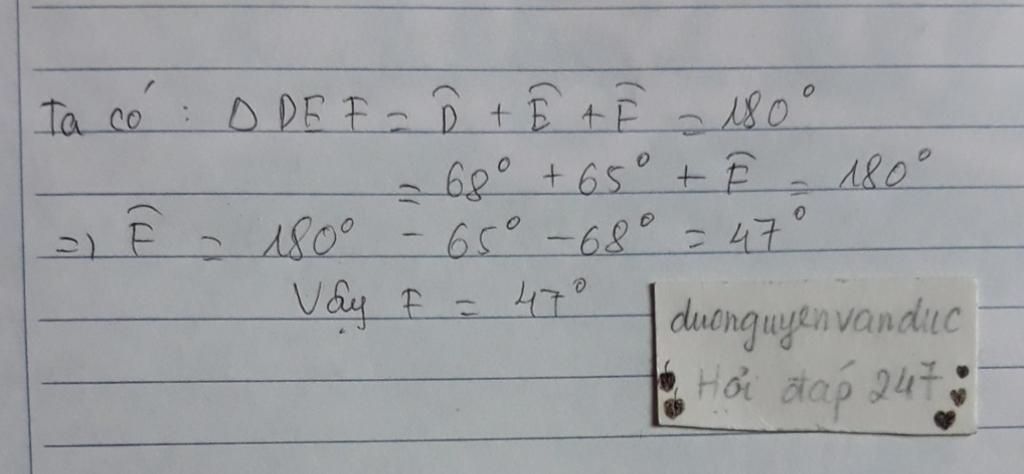 Ta có : Δ DEF = D̂ + Ê + F̂ = 180°
= 68° + 65° + F̂ = 180°
=> F̂ = 180° - 65° - 68° = 47°
Vậy F = 47°
duonguyenvanduc
Hỏi đáp 247